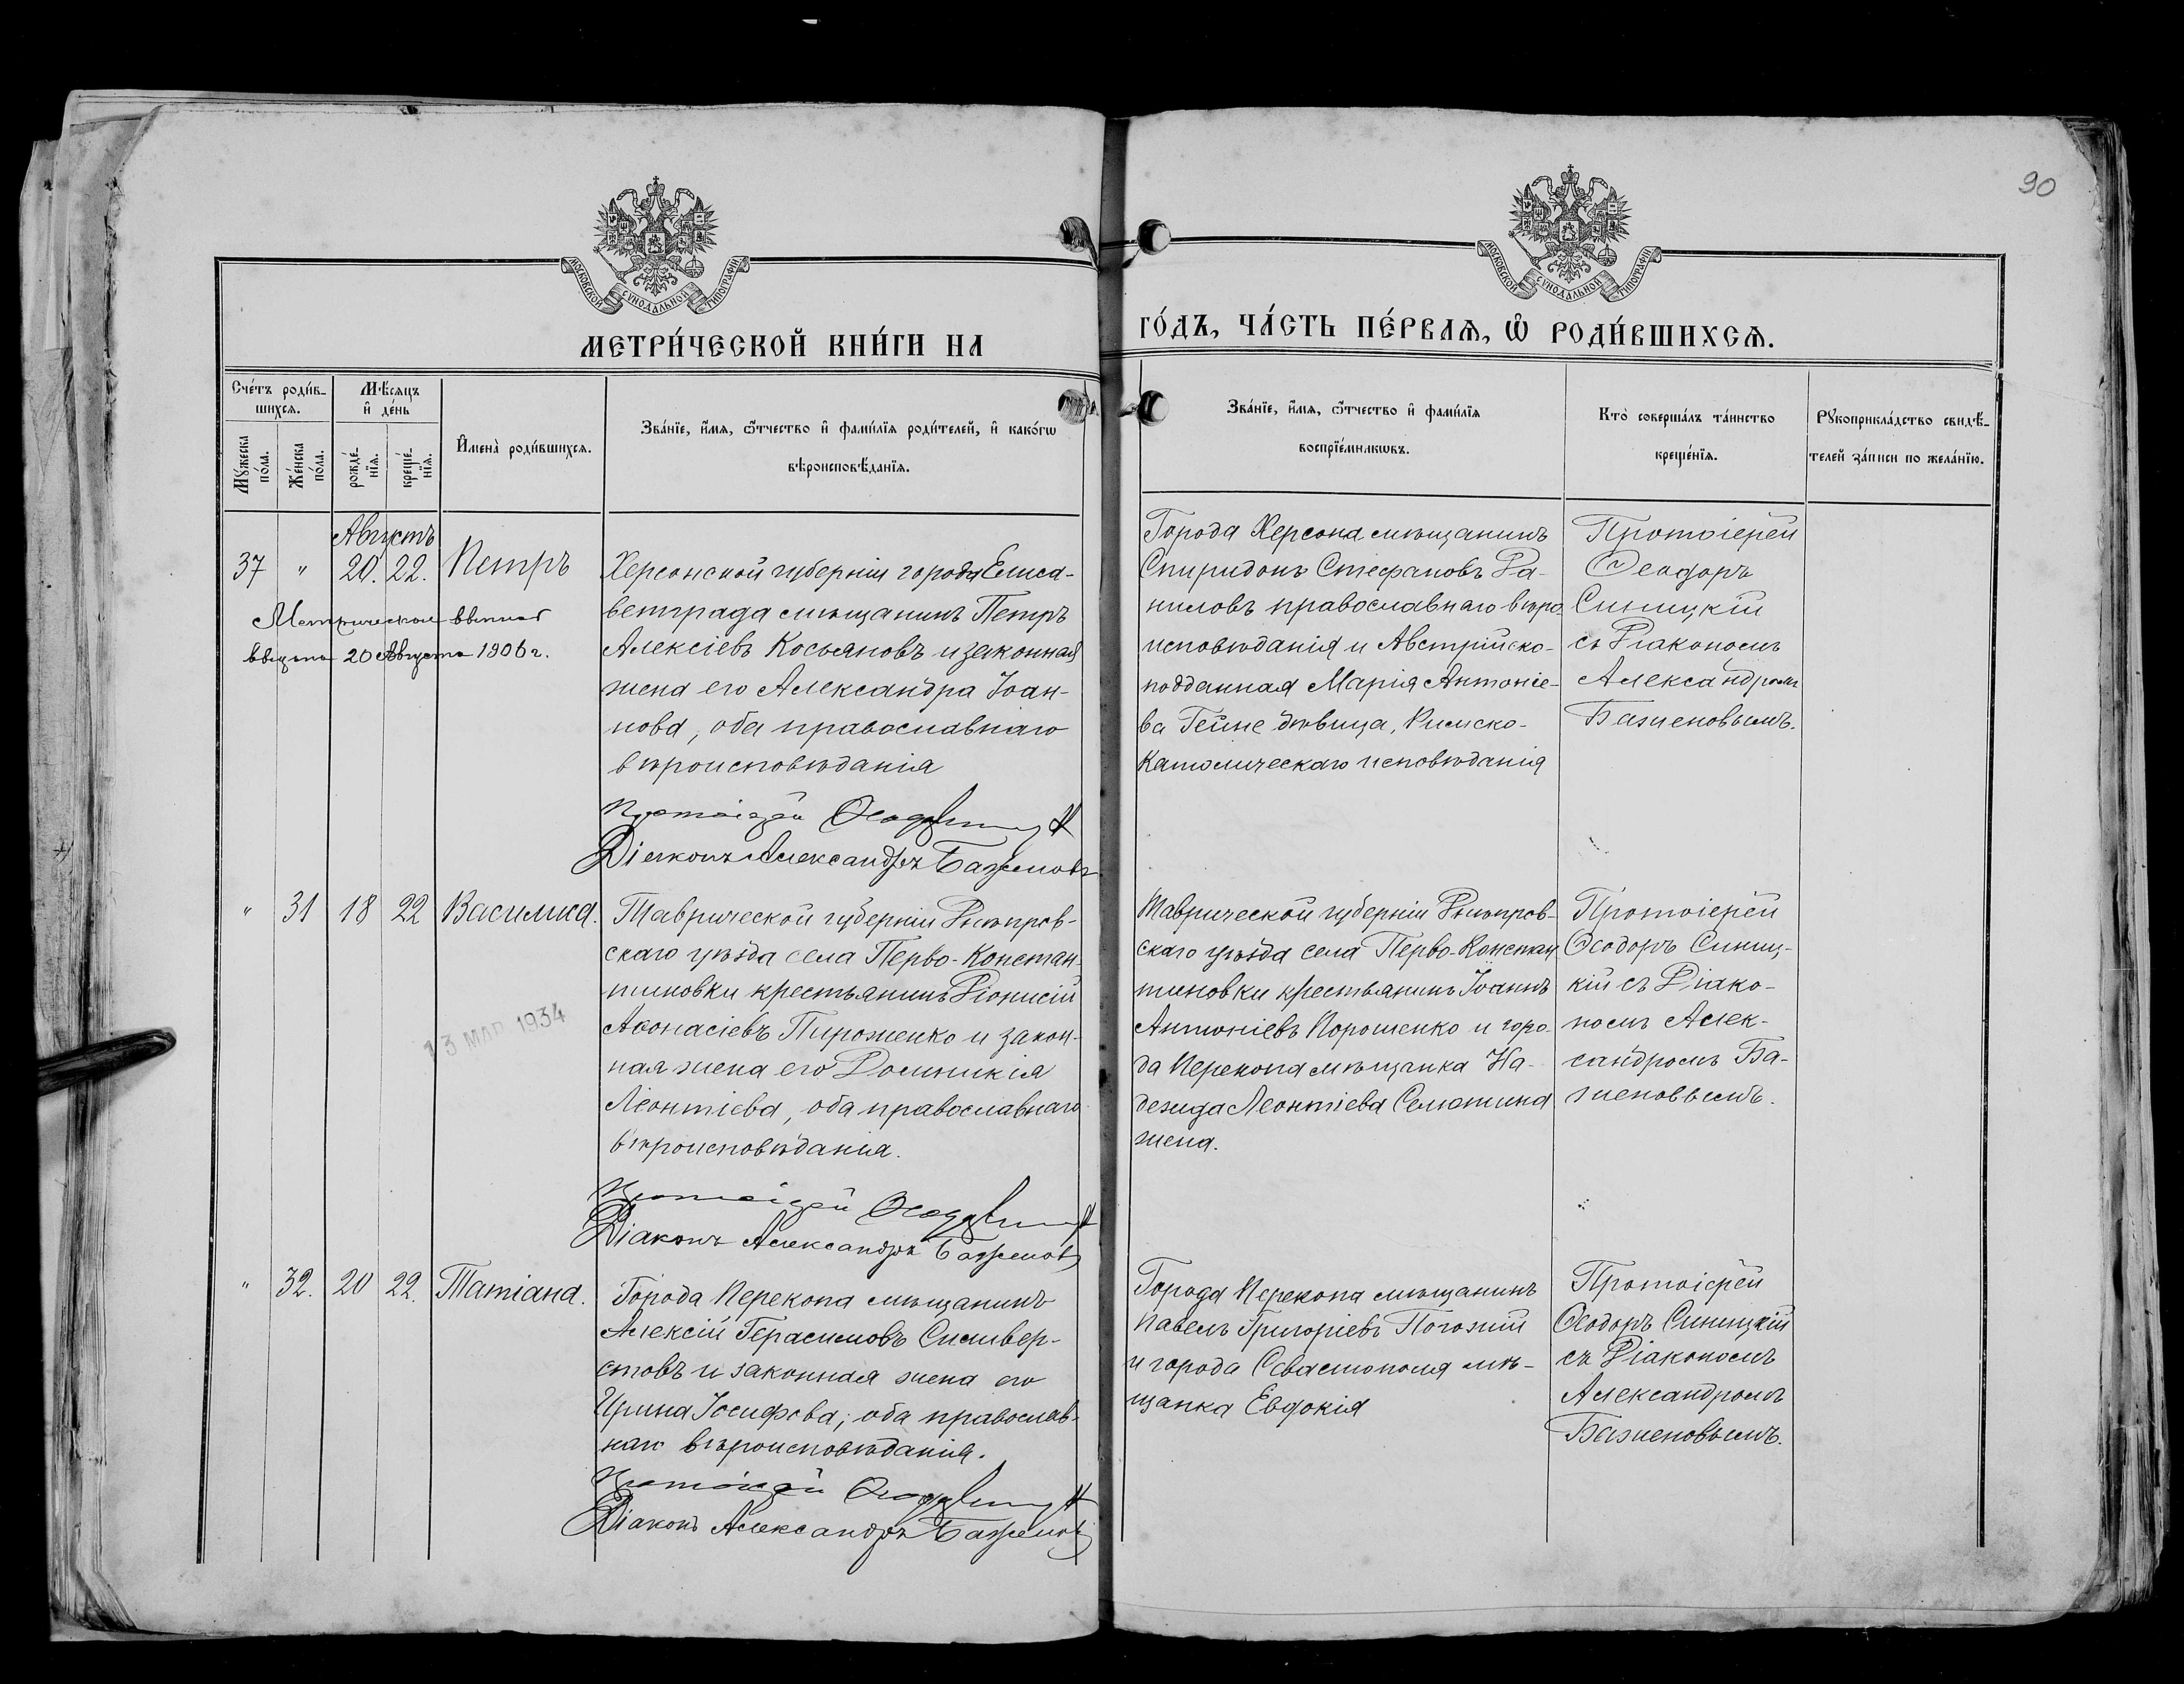 90
МОСКОВСКОЙ СѴНОДАЛЬНОЙ ТИПОГРАФІИ
МОСКОВСКОЙ СѴНОДАЛЬНОЙ ТИПОГРАФІИ
МЕТРИ́ЧЕСКОЙ КНИ́ГИ НА
ГО́ДЪ, ЧА́СТЬ ПЕ́РВАѦ, Ѿ РОДИ́ВШИХСѦ.
Сче́тъ роди́в-
шихсѧ.
Мѣ́сѧцъ
и҆ де́нь
Мꙋ́жеска
по́ла.
Же́нска
по́ла.
рожде́-
нїѧ.
креще́-
нїѧ.
И҆мена̀ роди́вшихсѧ.
Зва́нїе, и҆́мѧ, ѻ҆́тчество и҆ фами́лїѧ роди́телей, и҆ како́гѡ
вѣроисповѣ́данїѧ.
Зва́нїе, и҆́мѧ, ѻ҆́тчество и҆ фами́лїѧ
воспрїе́мникѡвъ.
Кто̀ соверша́лъ та́инство
креще́нїѧ.
Рꙋкоприкла́дство свидѣ́-
телей за́писи по жела́нїю.
Августъ
37 " 20. 22. Петръ
Метрическая выпись
выдана 20 Августа 1906 г.
Херсонской губерніи города Елиса-
ветграда мѣщанинъ Петръ
Алексіевъ Косьяновъ и законная
жена его Александра Іоан-
нова, оба православнаго
вѣроисповѣданія
Протоіерей Ѳеодоръ Синицкій
Діаконъ Александръ Баженовъ
Города Херсона мѣщанинъ
Спиридонъ Стефановъ Да-
ниловъ православнаго вѣро
исповѣданія и Австрійско-
подданная Марія Антоніе-
ва Гейне дѣвица, Римско-
Католическаго исповѣданія
Протоіерей
Ѳеодоръ
Синицкій
съ Діакономъ
Александромъ
Баженовымъ.
" 31 18 22 Василиса.
Таврической губерніи Днѣпров-
скаго уѣзда села Перво-Констан-
тиновки крестьянинъ Діонисій
Аѳонасіевъ Пироженко и закон-
ная жена его Домникія
Леонтіева, оба православнаго
вѣроисповѣданія.
Протоіерей Ѳеодоръ Синицкій
Діаконъ Александръ Баженовъ
13 МАР 1934
Таврической губерніи Днѣпров-
скаго уѣзда села Перво-Констан
тиновки крестьянинъ Іоаннъ
Антоніевъ Порошенко и горо-
да Перекопа мѣщанка На-
дежда Леонтіева Селютина
жена.
Протоіерей
Ѳеодоръ Синиц-
кій съ Діако-
номъ Алек-
сандромъ Ба-
женовымъ.
" 32. 20 22. Татіана.
Города Перекопа мѣщанинъ
Алексій Герасимовъ Силивер-
стовъ и законная жена его
Ирина Іосифова, оба православ-
наго вѣроисповѣданія.
Протоіерей Ѳеодоръ Синицкій
Діаконъ Александръ Баженовъ
Города Перекопа мѣщанинъ
Павелъ Григоріевъ Погожій
и города Севастополя мѣ-
щанка Евдокія
Протоіерей
Ѳеодоръ Синицкій
съ Діакономъ
Александромъ
Баженовымъ.